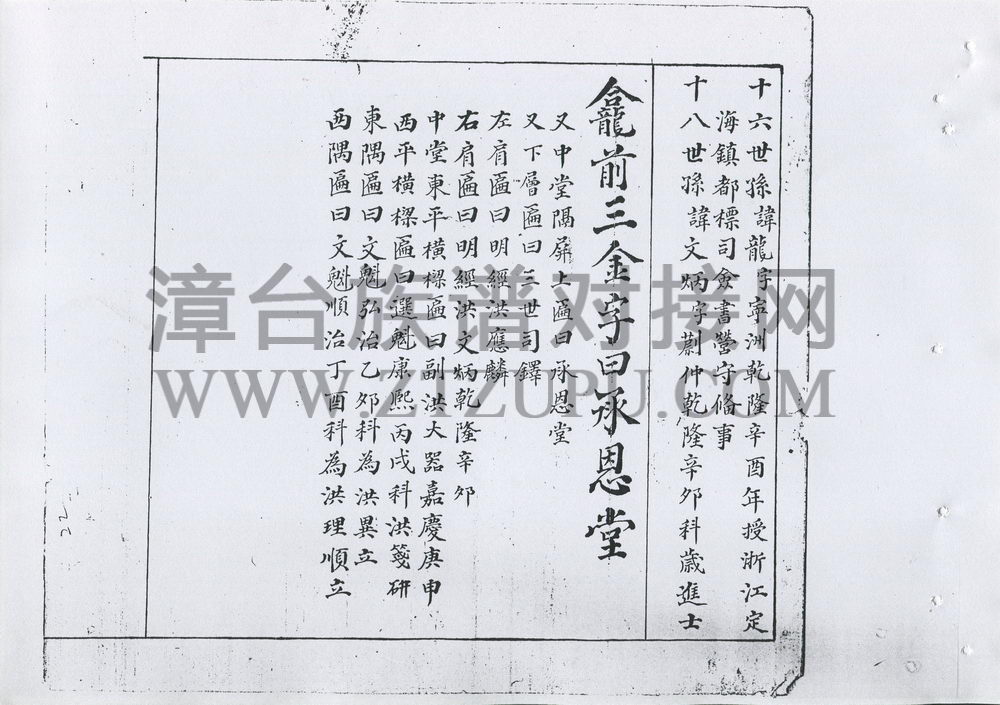 十六世孫諱龍字寧洲乾隆辛酉年授浙江定
海鎮都標司僉書營守俻事
十八世孫諱文炳字蔚仲乾隆辛夘科歲進士
龕前三金字曰承恩堂
又中堂隔屏上匾曰承恩堂
又下層匾曰三世司鐸
左肩匾曰明經洪應麟
右肩匾曰明經洪文炳乾隆辛夘
中堂東平橫樑匾曰副洪大器嘉慶庚申
西平橫樑匾曰選魁康熙丙戌科洪箋研
東隅匾曰文魁弘治乙夘科為洪異立
西隅匾曰文魁順治丁酉科為洪理順立
漳台族谱对接网
WWW.ZTZUPU.COM
22